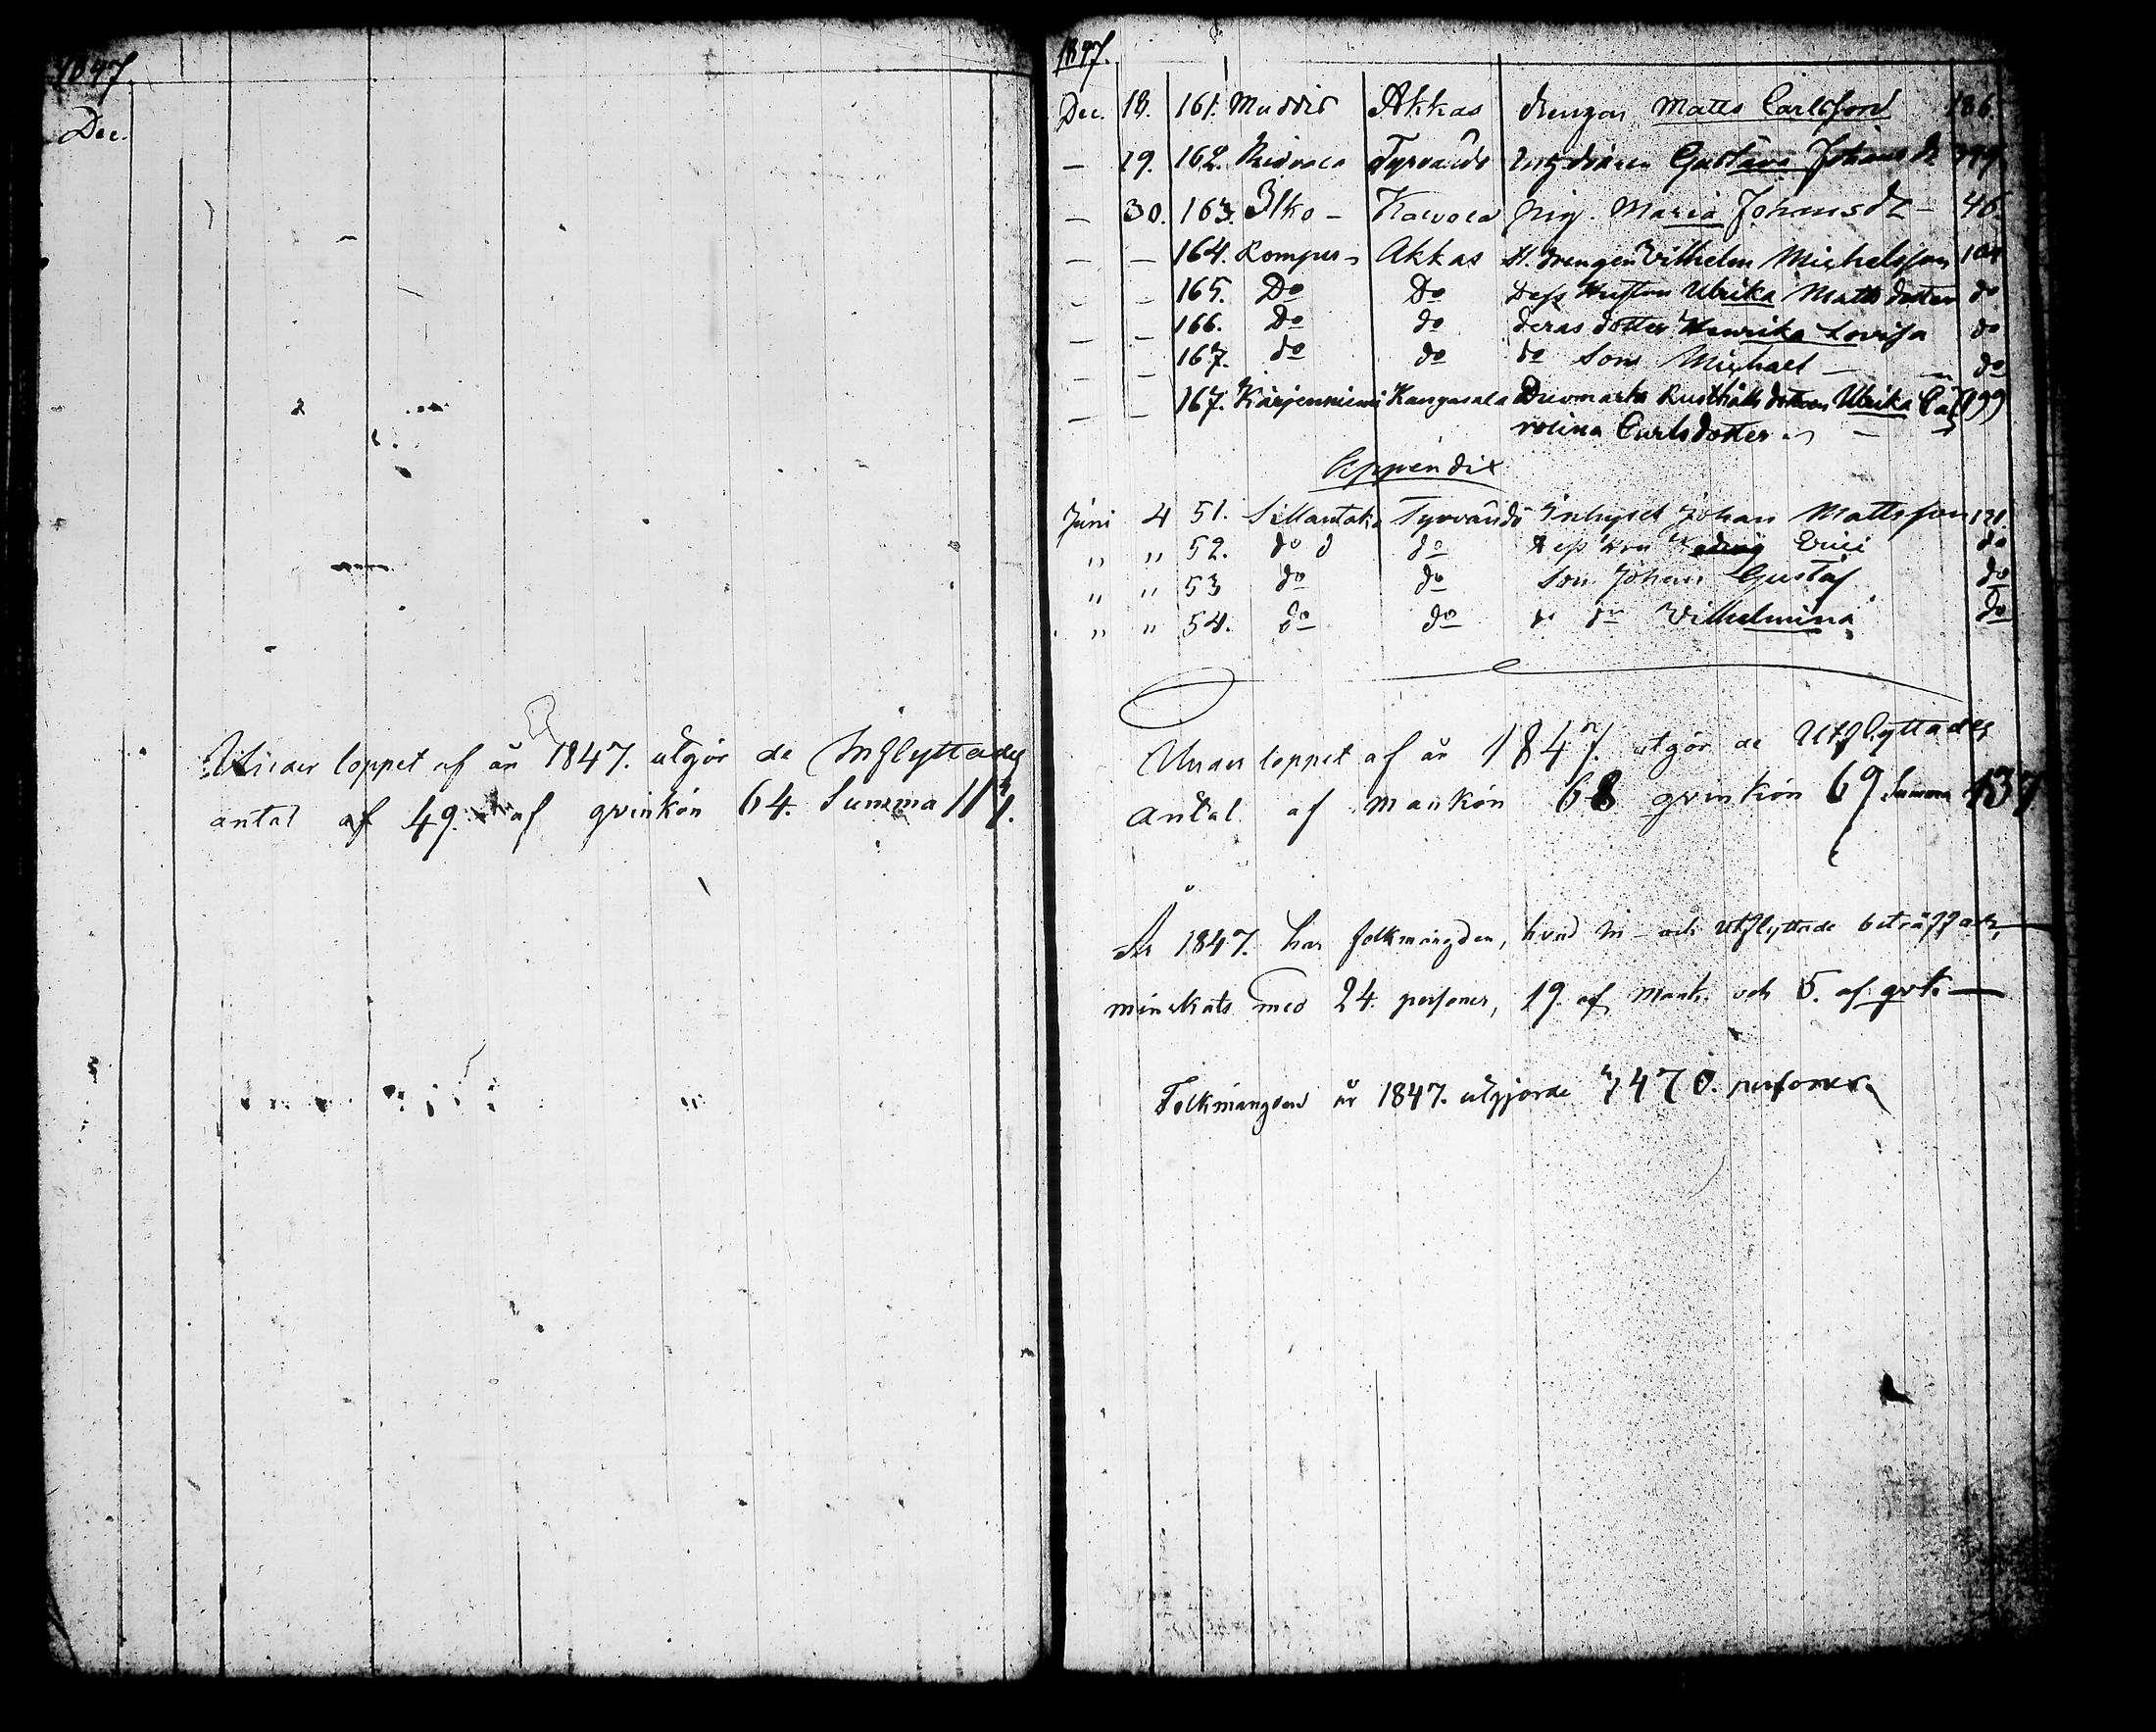 1847.
Dec.
Under loppet af år 1847. utgör de Inflyttades
antal af 49. af qvinkön 64. Summa 113.
1847.
Dec. 18. 161. Akkas drengen Matts Carlsson 136.
— 29. 162. Tyrvändö Gustava Johansdr
— 30. 163. Ilko — Kawola pig. Maria Johansdr — 46.
— — 164. Kompus Akkas drengen Vilhelm Michelsson
— — 165. Do Do Dess Hustru Ulrika Mattsdotter do
— — 166. Do do deras dotter Henrika Lovisa do
— — 167. do do do Son Michael — — do
— — 167. Kärjenniemi Kangasala Rusthålls dottren Ulrika Ca 199
rolina Carlsdotter. — —
Appendix
Juni 4 51. Sillantaka Tyrvändö Inhyses Johan Mattsson 121.
„ „ 52. do do Dess hru Hedvig do
„ „ 53 do do Son Johan Gustaf do
„ „ 54. do do Vilhelmina do
Under loppet af år 1847. utgör de Utflyttades
antal af Mankön 68 qvinkön 69 Summa 137
År 1847. har folkmängden, hvad In- och Utflyttade beträffar,
minskats med 24. personer, 19. af mank. och 5. af qvk. —
Folkmängden år 1847. utgjorde 7470. personer.